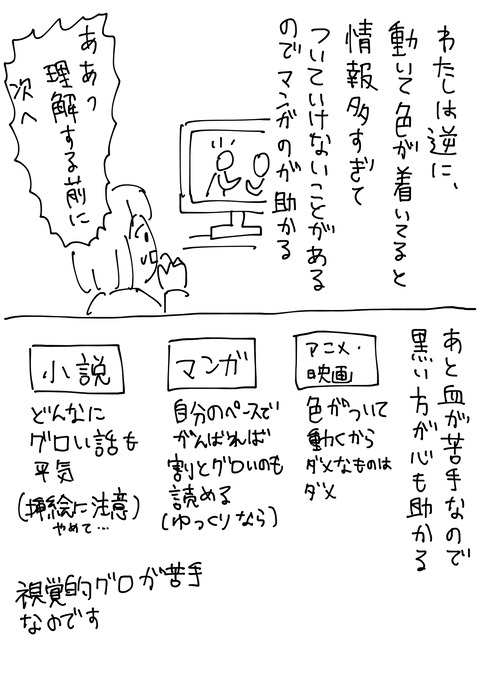 わたしは逆に、
動いて色が着いてると
情報多すぎて
ついていけないことがある
のでマンガのが助かる
ああっ
理解する前に
次へ
あと血が苦手なので
黒い方が心も助かる
アニメ・
映画
色がついて
動くから
ダメなものは
ダメ
マンガ
自分のペースで
がんばれば
割とグロいのも
読める
(ゆっくりなら)
小説
どんなに
グロい話も
平気
(挿絵に注意)
やめて…
視覚的グロが苦手
なのです